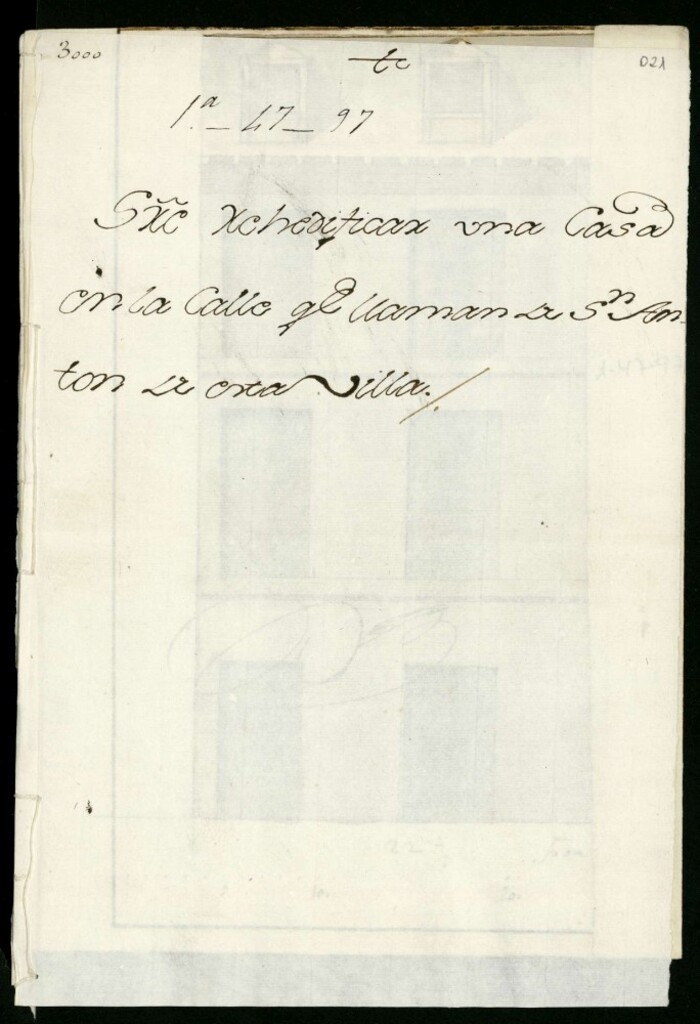 3000
021
1.ª - 47 - 97
Sr̃e Rehedificar vna Casa
en la Calle q.e llaman de S.n An-
ton de esta Villa.